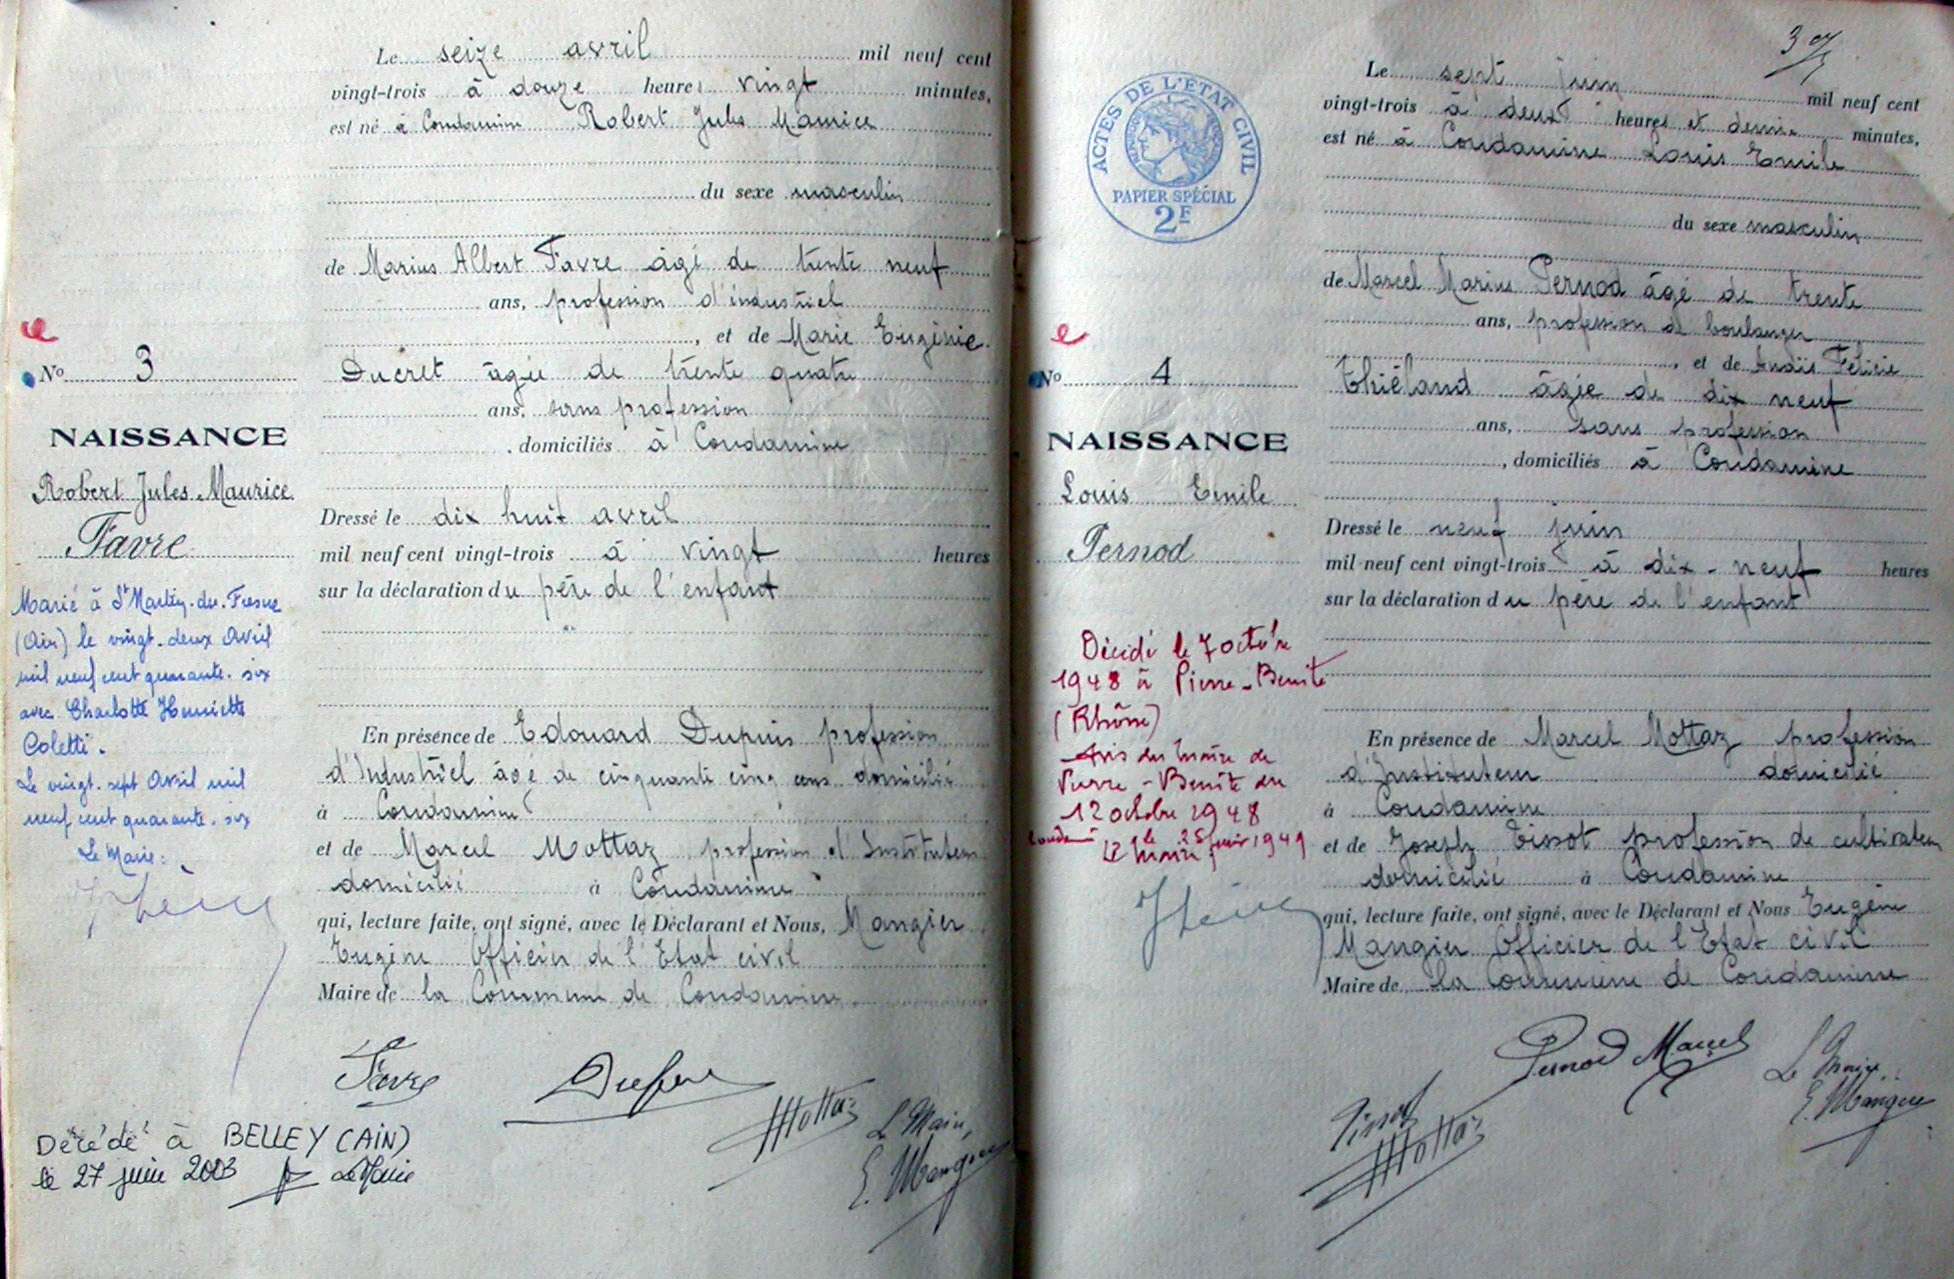 Le seize avril mil neuf cent
vingt-trois à douze heures vingt minutes,
est né à Condamine Robert Jules Maurice
du sexe masculin
de Marius Albert Favre âgé de trente neuf
ans, profession d'industriel
, et de Marie Eugénie
Ducret âgée de trente quatre
ans, sans profession
, domiciliés à Condamine
Dressé le dix huit avril
mil neuf cent vingt-trois à vingt heures
sur la déclaration du père de l'enfant
En présence de Edouard Dupuis profession
d'Industriel âgé de cinquante cinq ans domicilié
à Condamine
et de Marcel Mottaz profession d'Instituteur
domicilié à Condamine
qui, lecture faite, ont signé, avec le Déclarant et Nous, Mangier
Eugène Officier de l'Etat civil
Maire de la Commune de Condamine.
Favre
Mottaz
Le Maire,
E. Mangier
No 3
NAISSANCE
Robert Jules Maurice
Favre
Marié à St Martin-du-Fresne
(Ain) le vingt-deux Avril
mil neuf cent quarante-six
avec Charlotte Henriette
Coletti.
Le vingt-sept Avril mil
neuf cent quarante-six
Le Maire:
Décédé à BELLEY (AIN)
le 27 juin 2003 Le Maire
ACTES DE L'ÉTAT CIVIL
PAPIER SPÉCIAL
2F
Le sept juin mil neuf cent
vingt-trois à deux heures et demie minutes,
est né à Condamine Louis Emile
du sexe masculin
de Marcel Marius Pernod âgé de trente
ans, profession d boulanger
, et de Anaïs Félicie
Thiéland âgée de dix neuf
ans, sans profession
, domiciliés à Condamine
Dressé le neuf juin
mil neuf cent vingt-trois à dix-neuf heures
sur la déclaration du père de l'enfant
En présence de Marcel Mottaz profession
d'Instituteur domicilié
à Condamine
et de Joseph Tissot profession de cultivateur
domicilié à Condamine
qui, lecture faite, ont signé, avec le Déclarant et Nous Eugène
Mangier Officier de l'Etat civil
Maire de la Commune de Condamine
Pernod Marcel
Le Maire,
E. Mangier
Tissot
Mottaz
No 4
NAISSANCE
Louis Emile
Pernod
Décédé le 7 octobre
1948 à Pierre-Bénite
(Rhône)
Avis du Maire de
Pierre-Bénite du
12 octobre 1948
le 25 janvier 1949
Le Maire,